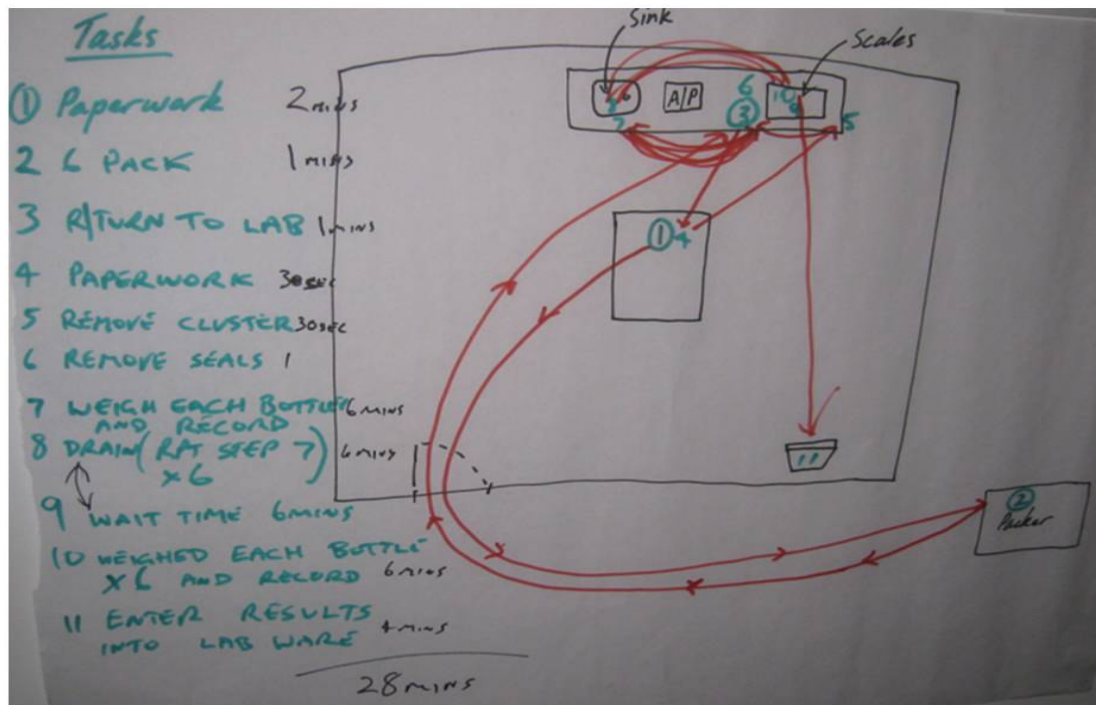 Tasks
① Paperwork 2 mins
2 6 PACK 1 mins
3 R/TURN TO LAB 1 mins
4 PAPERWORK 30 sec
5 REMOVE CLUSTER 30 sec
6 REMOVE SEALS 1
7 WEIGH EACH BOTTLE 6 mins
AND RECORD
8 DRAIN (RPT STEP 7) 6 mins
x 6
9 WAIT TIME 6 mins
10 WEIGHED EACH BOTTLE
x 6 AND RECORD 6 mins
11 ENTER RESULTS
INTO LAB WARE 4 mins
28 mins
Sink
Scales
8
A/P
6
③
10
9
7
5
① 4
11
②
Packer